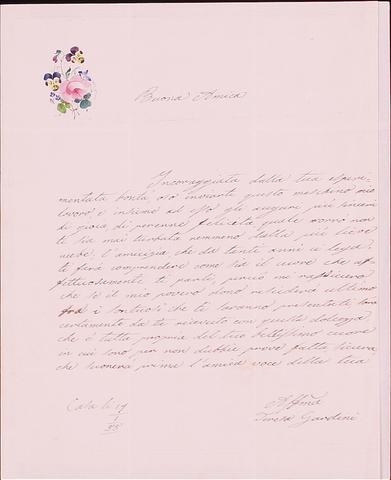 Buona Amica
Incoraggiata dalla tua esperi-
mentata bontà, oso inviarti questo meschino mio
lavoro e insieme ad esso gli auguri più sinceri
di gioia di perenne felicità quale vorrei non
ti sia mai turbata nemmeno dalla più lieve
nube. L'amicizia, che da tanti anni ci lega,
ti farà comprendere come sia il cuore che af-
fettuosamente ti parla, perciò
che se il mio povero dono
fra i che ti saranno presentati, sarà
certamente da te ricevuto con quella dolcezza
che è tutta propria del tuo bellissimo cuore
in cui sono per non dubbie prove fatta sicura,
che suonerà prima l'amica voce della tua
Aff.ma
Teresa Gardini
Casa li 19